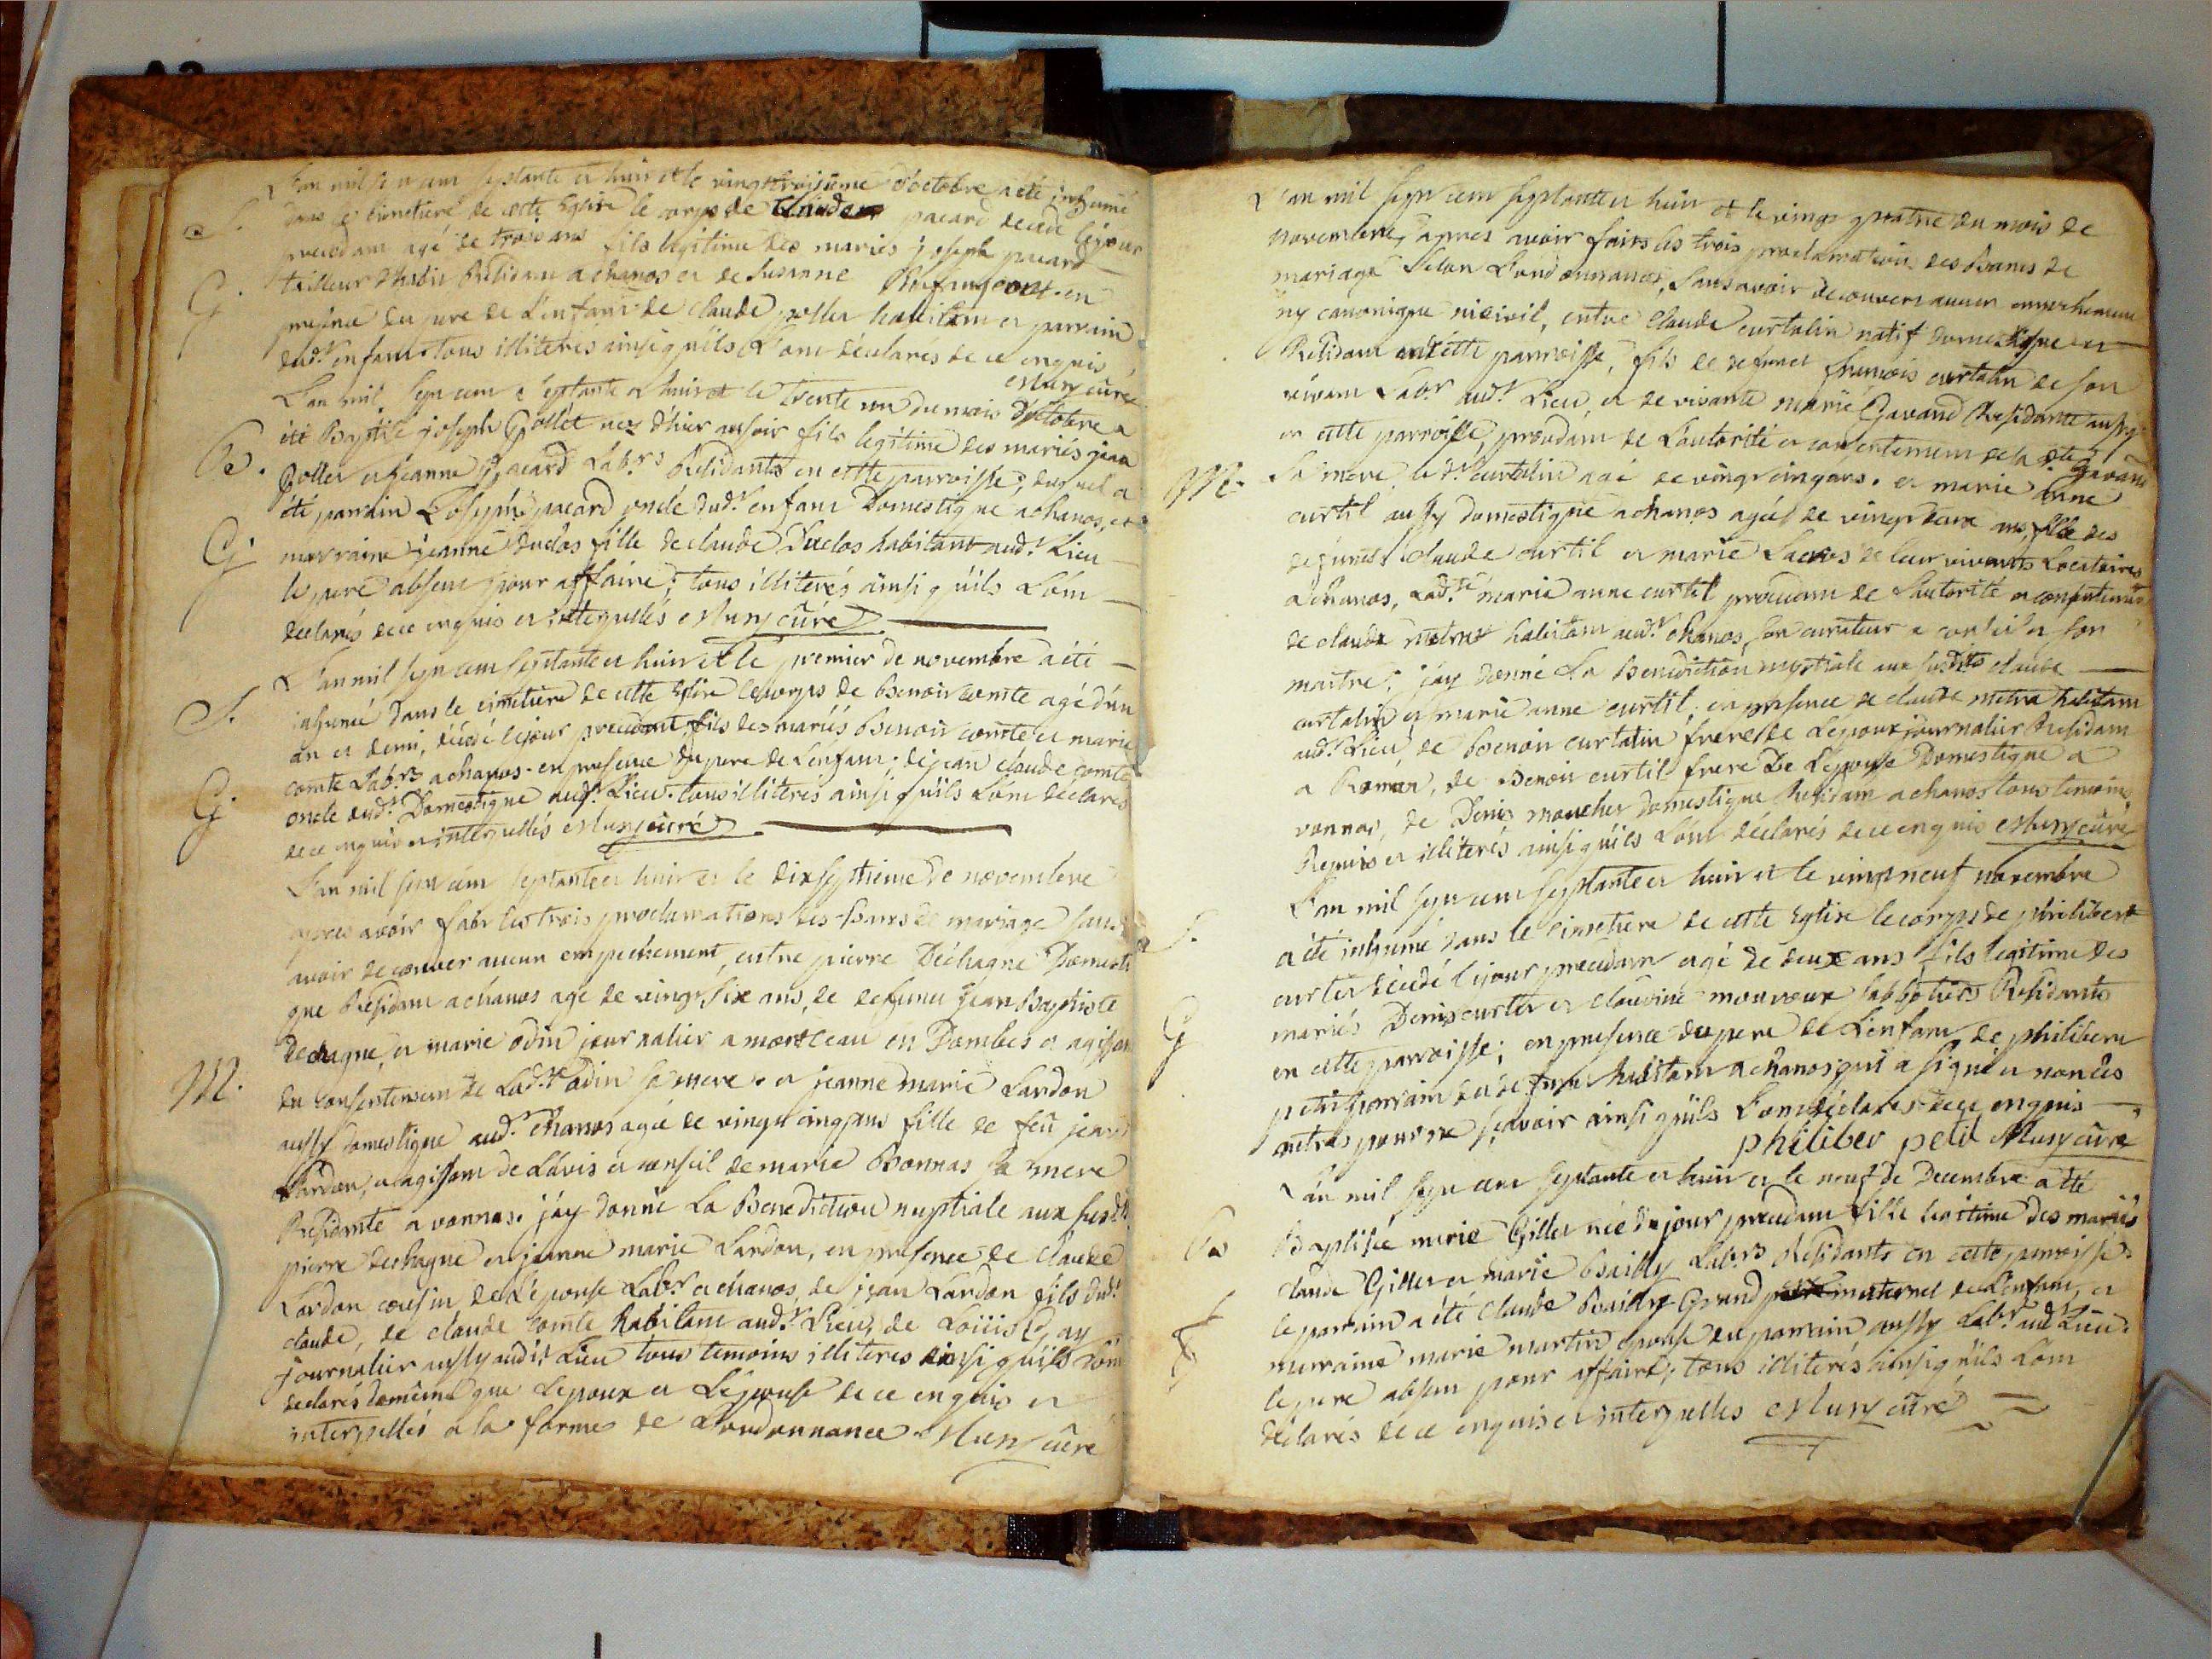 L'an mil sept cent septante et huit et le vingt troisieme d'octobre a été inhumé
dans le cimetiere de cette Eglise le corps de Claude pacard decedé le jour
S.
precedant agé de trois ans fils legitime des mariés joseph pacard
tailleur d'habit Residant a chanos et de Susanne en
G.
presence du pere de l'enfant de claude pollet habitant et parrain
dud.t enfant tous illiterés ainsi qu'ils L'ont déclarés de ce enquis
Muny curé
L'an mil sept cent septante et huit et le trente un du mois d'octobre a
été Baptisé joseph Gollet nez d'hier au soir fils legitime des mariés jean
B.
Gollet et jeanne pacard Lab.rs Residants en cette parroisse, duquel a
été parrain joseph pacard oncle dud.t enfant Domestique a chanos, et
G
marraine jeanne duclos fille de claude Duclos habitant aud.t Lieu
le pere absent pour affaire; tous illiterés ainsi qu'ils L'ont
declarés de ce enquis et interpellés Muny curé
L'an mil sept cent septante et huit et le premier de novembre a été
S.
inhumé dans le cimetiere de cette Eglise le corps de Benoit comte agé d'un
an et demi, décédé le jour precedent, fils des mariés Benoit comte et marie
comte Lab.rs a chanos en presence du pere de L'enfant, de jean claude comte
G
oncle dud.t Domestique aud.t Lieu. tous illiterés ainsi qu'ils L'ont declarés
de ce enquis et interpellés Muny curé
L'an mil sept cent septante et huit et le dix septieme de novembre
apres avoir fait les trois proclamations des bans de mariage sans
avoir decouvert aucun empechement, entre pierre Déchagne Domesti
que Residant a chanos agé de vingt six ans, de defunct jean Baptiste
dechagne, et marie odin journalier a en Dombes et agissant
M.
du consentement de Lad.te odin sa mere. et jeanne marie Lardon
aussy domestique aud.t chanos agée de vingt cinq ans fille de feü jean
Lardon, et agissant de L'avis et conseil de marie Bonnas sa mere
Residante a vonnas. j'ay donné La Benediction nuptiale aux susd.ts
pierre dechagne et jeanne marie Lardon, en presence de claude
Lardon cousin de L'épouse Lab.r a chanos, de jean Lardon fils dud.t
claude, de claude comte habitant aud.t Lieu, de Loüis Gay
journalier aussy audit Lieu tous temoins illiterés ainsi qu'ils L'ont
declarés de même que L'epoux et L'épouse de ce enquis et
interpellés a la forme de L'ordonnance. Muny curé
L'an mil sept cent septante et huit et le vingt quatre du mois de
novembre, apres avoir faits les trois proclamation des Bancs de
mariage selon L'ordonnance, sans avoir decouvert aucun empechement
ny canonique ni civil, entre claude curtalin natif domestique et
Residant en cette parroisse, fils de defunct francois curtalin de son
vivant Lab.r aud.t Lieu, et de vivante marie Gavand Residante aussy
en cette parroisse, procedant de L'autorité et consentement de la d.te Gavand
M.
sa mere, le d.t curtalin agé de vingt cinq ans. et marie anne
curtil aussy domestique a chanos agée de vingt deux ans, fille des
defuncts claude curtil et marie de leur vivants Locataires
a chanos, Lad.te marie anne curtil procedant de L'autorité et consentement
de claude metra habitant aud.t chanos, son curateur a conseil et son
maitre; j'ay donné La Benediction nuptiale aux susdits claude
curtalin et marie anne curtil, en presence de claude metra habitant
aud.t Lieu, de Benoit curtalin frere de L'epoux journalier Residant
a Roman, de Benoit curtil frere De L'epouse Domestique a
vonnas, de Denis moucher domestique Residant a chanos tous temoins
Requis et illiterés ainsi qu'ils L'ont déclarés de ce enquis Muny curé
L'an mil sept cent septante et huit et le vingt neuf novembre
S.
a été inhumé dans le cimetiere de cette Eglise le corps de philibert
curtet décedé le jour precedant agé de deux ans fils legitime des
mariés Denis curtet et claudine sabbotiers Residants
G
en cette parroisse; en presence du pere de L'enfant de philibert
petit parrain du defunt habitant a chanos qui a signé et non les
autres pour ne sçavoir ainsi qu'ils L'ont déclarés de ce enquis
philiber petit Muny curé
L'an mil sept cent septante et huit et le neuf de Decembre a été
B
Baptisée marie Gillet née du jour precedant fille legitime des mariés
claude Gillet et marie Bailly Lab.rs Residants en cette parroisse.
le parrain a été claude Bailly Grand pere maternel de L'enfant, et
G
marraine marie martin epouse du parrain aussy Lab.r aud.t Lieu.
le pere absent pour affaire; tous illiterés ainsi qu'ils L'ont
déclarés de ce enquis et interpellés Muny curé